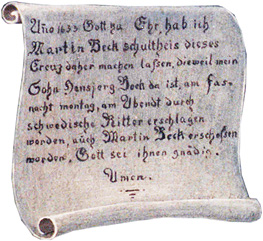 Año 1633 Gott zu Ehr, hab ich
Martin Beck schultheis dieses
Creuz daher machen laßen, dieweil mein
Sohn Hansjerg Beck da ist, am fas-
nacht montag, am Abendt durch
schwedische Ritter erschlagen
worden, auch Martin Beck erschoßen
worden, Gott sei ihnen gnädig.
Amen.